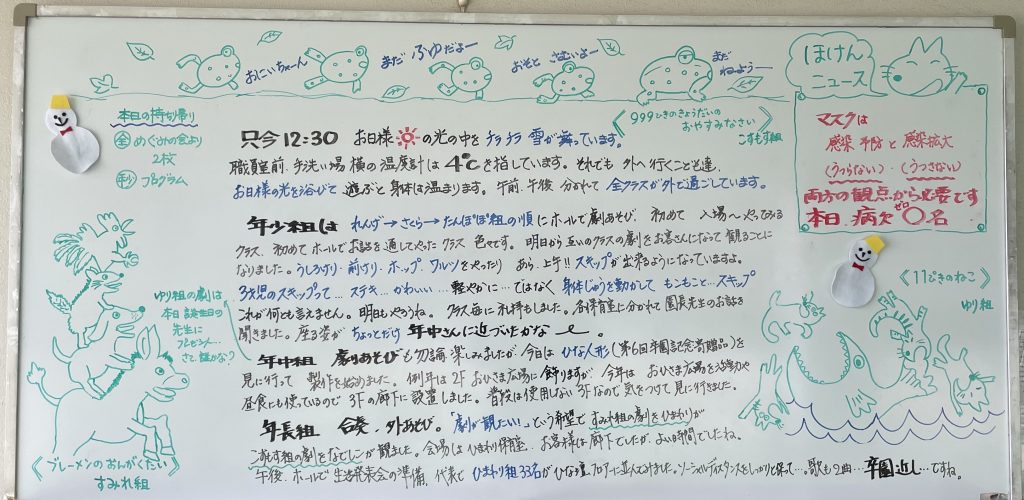 おにいちゃーん
まだ ふゆだよー
おそと さむいよー
まだ
ねよう—
ほけん
ニュース
999ひきのきょうだいの
おやすみなさい
こすもす組
本日の持ち帰り
全 めぐみの会より
2枚
プログラム
マスクは
感染予防と感染拡大
(うつらない)・(うつさない)
両方の観点から必要です
本日 病欠 ゼロ 0名
只今12:30 お日様の光の中を チラチラ 雪が舞っています。
職員室前、手洗い場横の温度計は 4℃を指しています。それでも 外へ行くこども達、
お日様の光を浴びて 遊ぶと身体は温まります。午前、午後 分かれて 全クラスが外で過ごしています。
年少組は れんげ→さくら→たんぽぽ組の順にホールで劇あそび、初めて 入場〜やってみる
クラス、初めてホールでお話を通してやったクラス 色々です。明日から互いのクラスの劇をお客さんになって観ることに
なりました。うしろけり・前けり・ホップ、ワルツをやったり あら、上手!! スキップが出来るようになっていますよ。
3才児のスキップって…ステキ…かわいい… 軽やかに…ではなく 身体じゅうを動かして もんもこ…スキップ
これが何とも言えません。明日もやろうね。クラス毎に礼拝もしました。各保育室に分かれて園長先生のお話を
聞きました。座る姿が ちょっとだけ 年中さんに近づいたかな〜。
年中組 劇あそびも勿論楽しみましたが、今日は ひな人形(第6回卒園記念寄贈品)を
見に行って 製作を始めました。例年は2F おひさま広場に飾りますが 今年は おひさま広場を活動や
昼食にも使っているので 3Fの廊下に設置しました。普段は使用しない3Fなので気をつけて見に行きました。
年長組 合奏、外あそび。「劇が観たい!」という希望で すみれ組の劇をひまわりが
こすもす組の劇をなでしこが観ました。会場はひまわり保育室、お客様は廊下でしたが、よい時間でしたね。
午後、ホールで生活発表会の準備、代表で ひまわり組33名がひな壇、フロアーに並んでみました。ソーシャルディスタンスをしっかりと保って…。歌も2曲…卒園近し…ですね。
ゆり組の劇は
本日 誕生日の
先生に
プレゼント…
さて、誰かな?
《ブレーメンのおんがくたい》
すみれ組
《11ぴきのねこ》
ゆり組